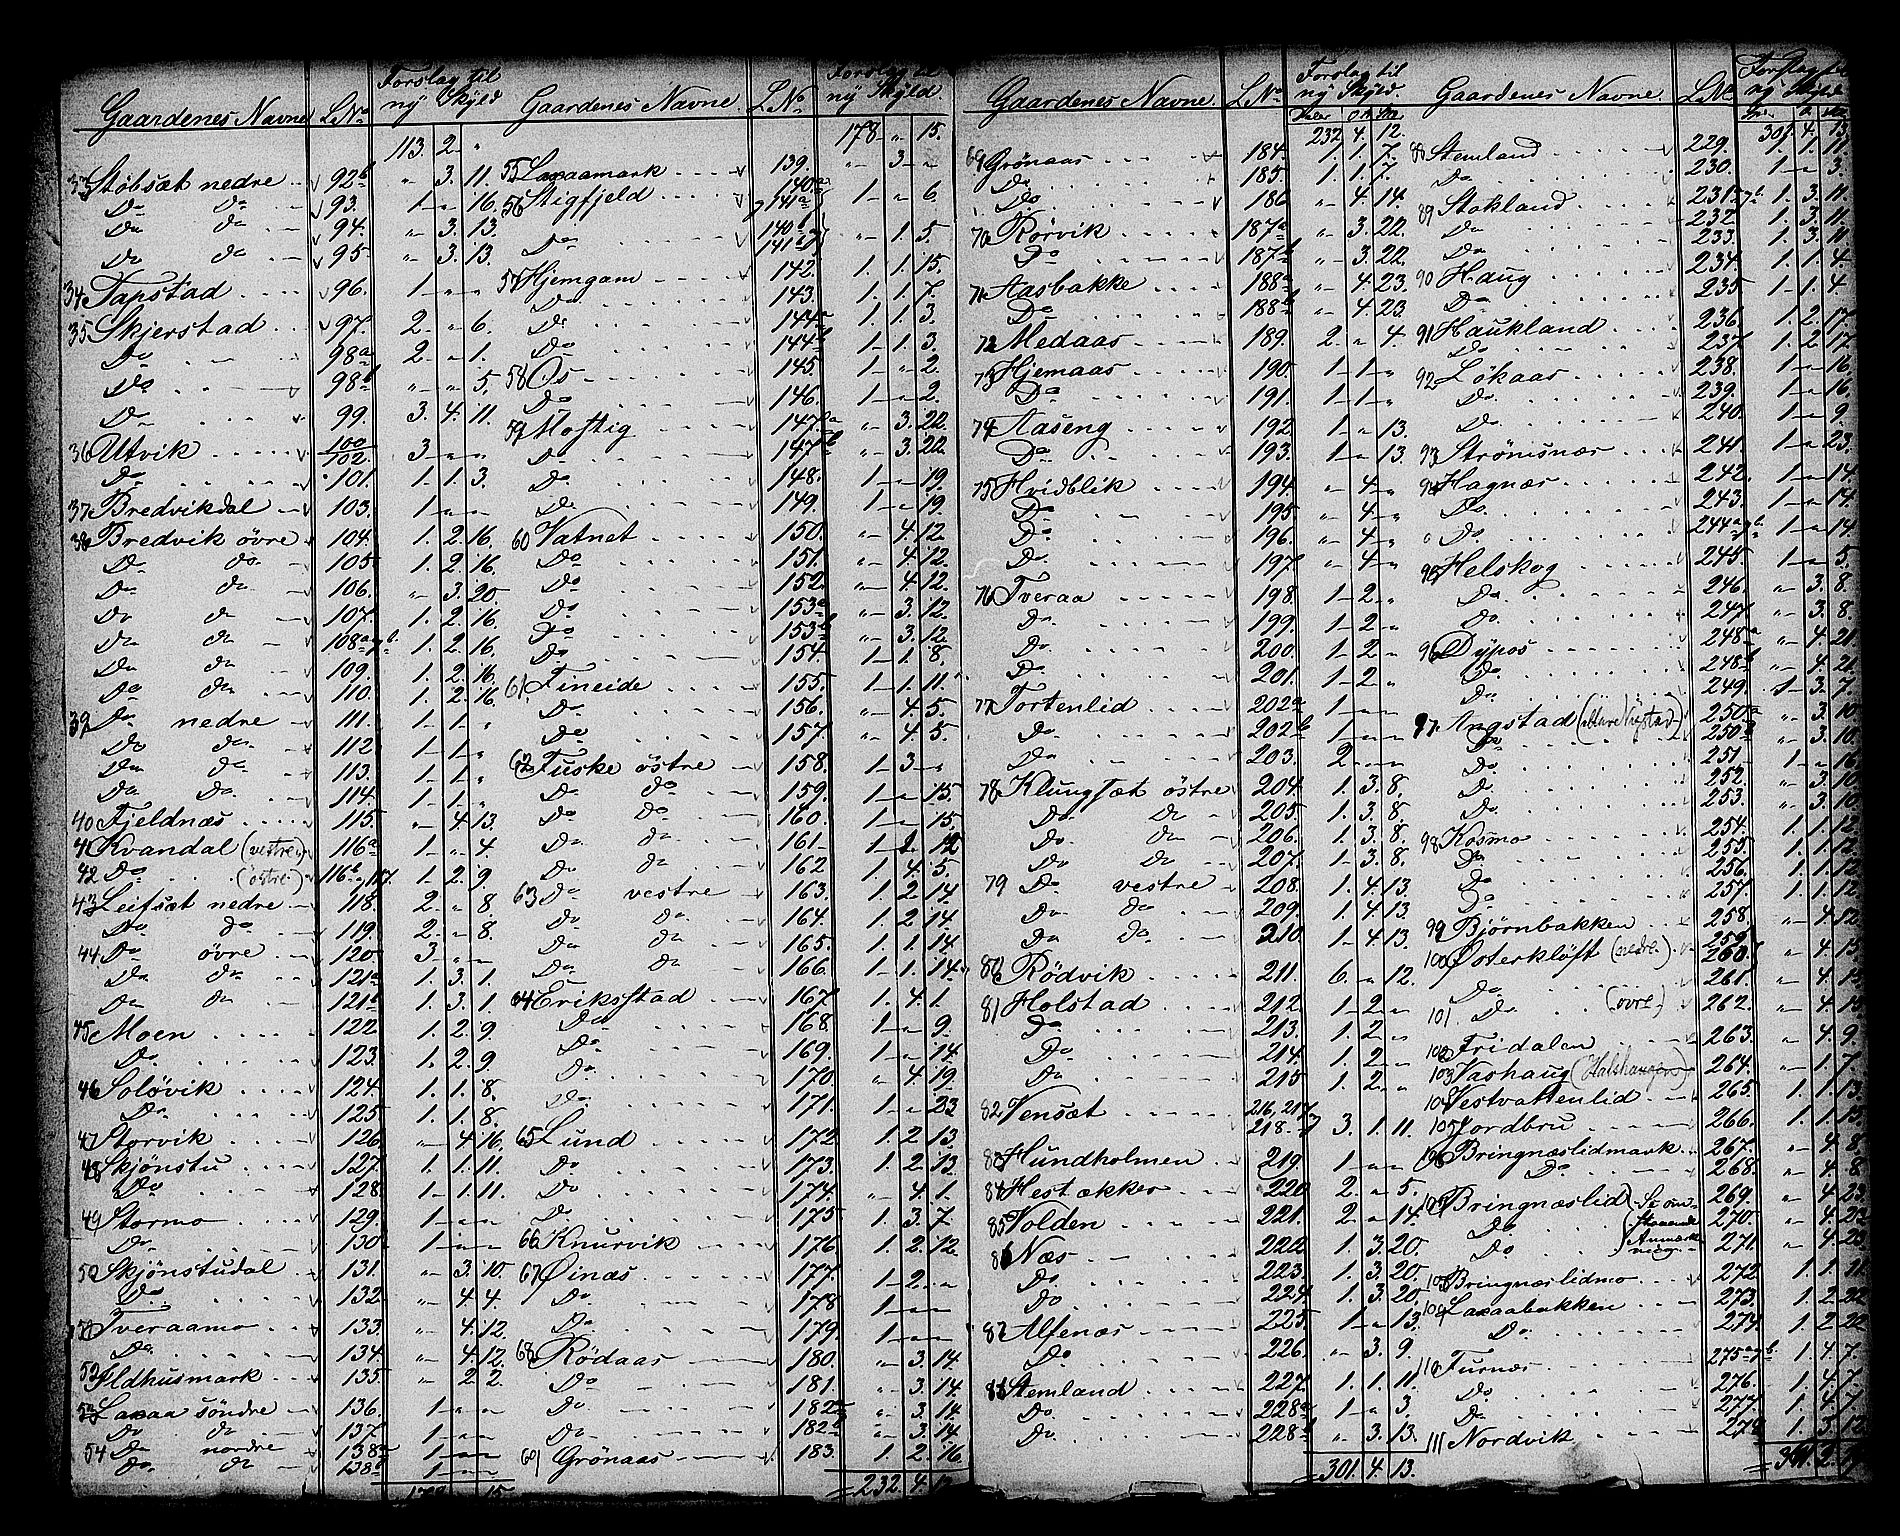 Gaardenes Navne LNo Forslag til ny Skyld
113. 2. "
33 Støbsæt nedre 92b " 3. 11.
Do Do 93. 1 " 16.
Do Do 94. " 3. 13.
Do Do 95. " 3. 13.
34 Tapstad 96. 1 " "
35 Skjerstad 97. 2 " 6.
Do 98a 2 " 1.
Do 98b " " 5.
Do 99. 3. 4. 11.
36 Utvik 100/102. 3 " "
Do 101. 1 1. 3.
37 Bredvikdal 103. 1 " "
38 Bredvik øvre 104. 1. 2. 16.
Do do 105 1. 2. 16.
Do do 106. " 3. 20.
Do do 107. 1. 2. 16.
Do do 108a&b. 1. 2. 16.
Do do 109. 1. 2. 16.
Do do 110. 1. 2. 16.
39 Do nedre 111. 1 1 "
Do do 112 1 1 "
Do do 113. 1 1 "
Do Do. 114. 1 1 "
40 Fjeldnæs 115. " 4. 13.
41 Kvandal (vestre) 116a 1 " 4.
42 Do (østre) 116b, 117. 1. 2. 9.
43 Leifsæt nedre 118. 2. " 8.
Do do 119. 2 " 8.
44 Do øvre 120 3 " "
Do do 121a 1. 3. 1.
Do do 121b 1. 3. 1.
45 Moen 122. 1. 2. 9.
Do 123. 1. 2. 9.
46 Soløvik 124. 1. 1. 8.
Do 125. 1. 1. 8.
47 Storvik 126. " 4. 16.
48 Skjönstu 127. 1. 1. 11.
Do 128. 1 1. 11.
49 Stormo 129. 1 " "
Do. 130 1 " "
50 Skjönstudal 131. " 3. 10.
Do. 132. " 4. 4.
51 Tveraamo 133. " 4. 12.
Do. 134. " 4. 12.
52 Ildhusmark 135 " 2. 2.
53 Laxaa søndre 136. 1 " "
Do do 137. 1 " "
54 Do nordre 138a 1 " "
Do do 138b 1 " "
Gaardenes Navne. LNo Forslag til ny Skyld.
178 " 15.
55 Laxaamark 139. " 3 "
56 Stigfjeld 140a & 141a 1 " 6.
Do 140b 141b " 1. 5.
57 Hjemgam 142. 1. 1. 15.
Do 143. 1. 1. 7.
Do 144a 1. 1. 3.
Do 144b 1 1. 3.
58 Os 145 1 " 2.
Do 146. 1 " 2.
59 Moftig 147a " 3. 22.
Do 147b " 3. 22.
Do 148. 1 " 19.
Do 149. 1 " 19.
60 Vatnet 150. " 4. 12.
Do 151. " 4. 12.
Do 152 " 4. 12.
Do 153a " 3. 12.
Do 153b " 3. 12.
Do 154. 1 1. 8.
61 Fineide 155. 1 1. 11.
Do 156. " 4. 5.
Do 157. " 4. 5.
62 Fuske østre 158. 1 3 "
Do do 159. 1 " 15.
Do do 160. 1 " 15.
Do do 161 1 12
Do do 162 1. 4. 5.
63 Do vestre 163. 1. 2. 14.
Do do 164. 1. 2. 14.
Do do 165. 1. 1. 14.
Do do 166. 1 1. 14.
64 Eriksstad 167. 1. 4. 1.
Do 168 1 " 9.
Do 169. 1 " 14.
Do 170. " 4. 19.
Do 171. 1 " 23
65 Lund 172 1. 2. 13.
Do 173. 1. 2. 13.
Do 174. " 4. 1.
Do. 175 1. 3. 7.
66 Knurvik 176 1. 2. 12.
67 Øinæs 177. 1 2. "
Do 178 1 " "
Do 179. 1 " "
68 Rödaas 180. " 3. 14.
Do 181. " 3. 14.
Do 182a " 3. 14.
Do 182b " 3. 14.
69 Grönaas 183. 1. 2. 16.
232. 4. 12.
Gaardenes Navne. LNo Forslag til ny Skyld.
232. 4. 12.
69 Grönaas 184. 1. 1. 7.
Do 185 1. 1. 7.
Do 186 " 4. 14.
70 Rörvik 187a " 3. 22.
Do 187b " 3. 22.
71 Aasbakke 188a " 4. 23.
Do 188b " 4. 23.
72 Medaas 189. 2 " 4.
73 Hjemaas 190. 1 1 "
Do 191. 1 1 "
74 Aaseng 192 1 " 13.
Do 193. 1 " 13.
75 Hvidblik 194. " 4 "
Do 195. " 4 "
Do 196. " 4 "
Do 197 " 4 "
76 Tveraa 198. 1 2 "
Do 199. 1 2 "
Do 200. 1 2 "
Do 201. 1 2 "
77 Tortenlid 202a 1 " "
Do 202b 1 " "
Do 203. 2 " "
78 Klungsæt østre 204. 1. 3. 8.
Do do 205. 1. 3. 8.
Do do 206. 1. 3. 8.
Do do 207. 1 3. 8.
79 Do vestre 208. 1. 4. 13.
Do do 209. 1. 4. 13.
Do do. 210. 1 4. 13.
80 Rödvik 211. 6. " 12.
81 Holstad 212. 1 2 "
Do 213. 1. 2 "
Do 214. 1. 2 "
Do 215 1. 2 "
82 Vensæt 216, 217 & 218 3. 1. 11.
83 Hundholmen 219. 1 " "
84 Hestækker 220 2. " 5.
85 Volden 221. 2 " 14.
86 Næs 222. 1. 3. 20.
Do 223. 1. 3. 20.
Do 224. 1. 3. 20.
87 Alfenæs 225. 1 " 13.
Do 226. " 3. 9.
88 Stemland 227. 1. 1. 11.
Do. 228a 1 " 3.
Do 228b " 3. 13.
301. 4. 13.
Gaardenes Navne. LNo Forslag til ny Skyld
301. 4. 13
88 Stemland 229. 1. 1. 11
Do 230. 1 " 3.
89 Stokland 231a&b 1. 3. 11.
Do 232. 1. 3. 11.
Do 233. 1. 3. 11
90 Haug 234. 1. 1. 4.
Do 235 1 1. 4.
91 Haukland 236. 1. 2. 17.
Do 237. 1. 2. 17
92 Løkaas 238. 1 " 16.
Do. 239. 1 " 16.
Do 240. 1 " 9.
93 Strömsnæs 241. 1 " 23.
94 Hagnæs 242. 1 " 14.
Do. 243. 1 " 14.
" Do 244a&b. 1 " 14.
95 Helskog 245. 1 " 5.
Do. 246. " 3. 8.
Do. 247. " 3. 8.
96 Dypos 248a " 4. 21
Do. 248b " 4. 21
Do. 249. 1 3. 7.
97 Angstad 250a " 3. 10
Do 250b " 3. 10
Do 251. 1 " 16
Do. 252. " 3. 10
Do. 253. " 3. 10
98 Kosmo 254. 1. 1. 12.
Do 255. 1. 1. 12.
Do 256. 1. 1. 12
Do 257. 1. 1. 12
99 Bjørnbakken 258. " 4. 12
100 Østerkløft (nedre) 259 260. " 4. 15
Do 261. " 4. 15
101. Do (øvre) 262. " 4. 15
102 Fridalen 263. " 4. 9.
103 Vashaug (Halshaugen) 264. " 1. 7.
104 Vestvattenlid 265. 1. 1. 13.
105 Jordbru 266. 1. 1. 15.
106 Bringnæslidmark 267. " 4. 8.
Do 268. " 4. 8
107 Bringnæslid 269. " 4. 23.
Do 270. " 4. 23
Do 271. " 4. 23.
108 Bringnæslidmo 272 1. 1. 11
109 Laxaabakken 273. 1. 2. 22
Do. 274. 1. 2. 22
110 Furnæs 275a&b. 1. 4. 7.
Do 276. 1. 4. 7.
Do 277. 1. 4. 7.
111 Nordvik 278 1. 3. 12